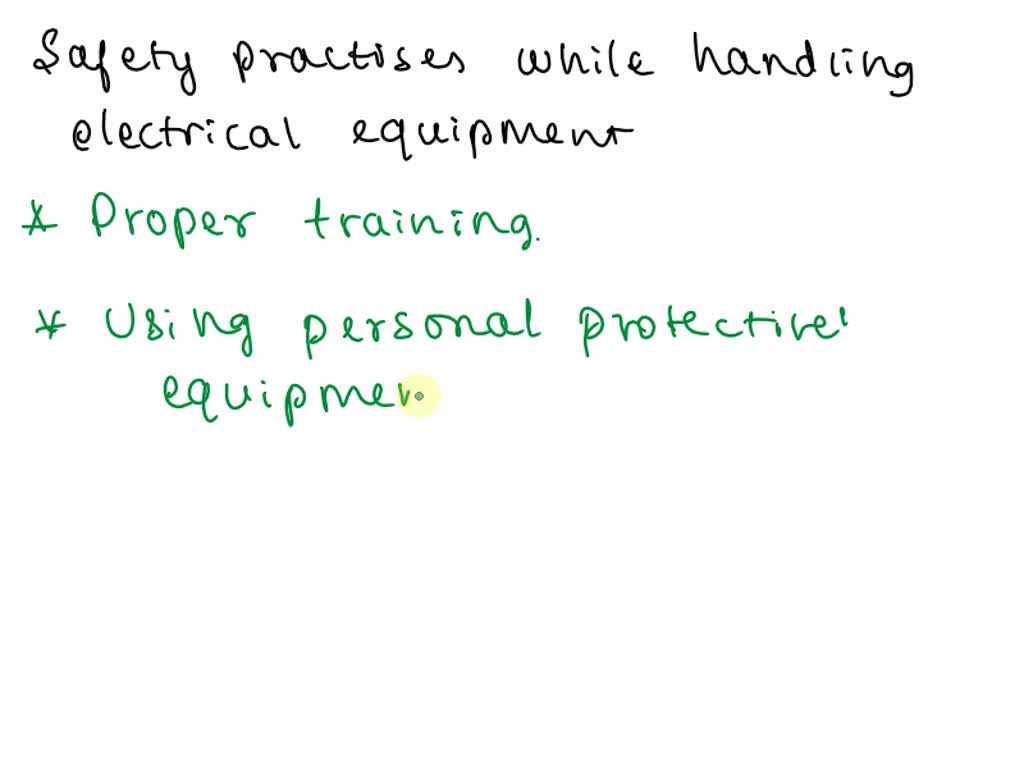 Safety practises while handling
electrical equipment
* Proper training.
* Using personal protective
equipmen